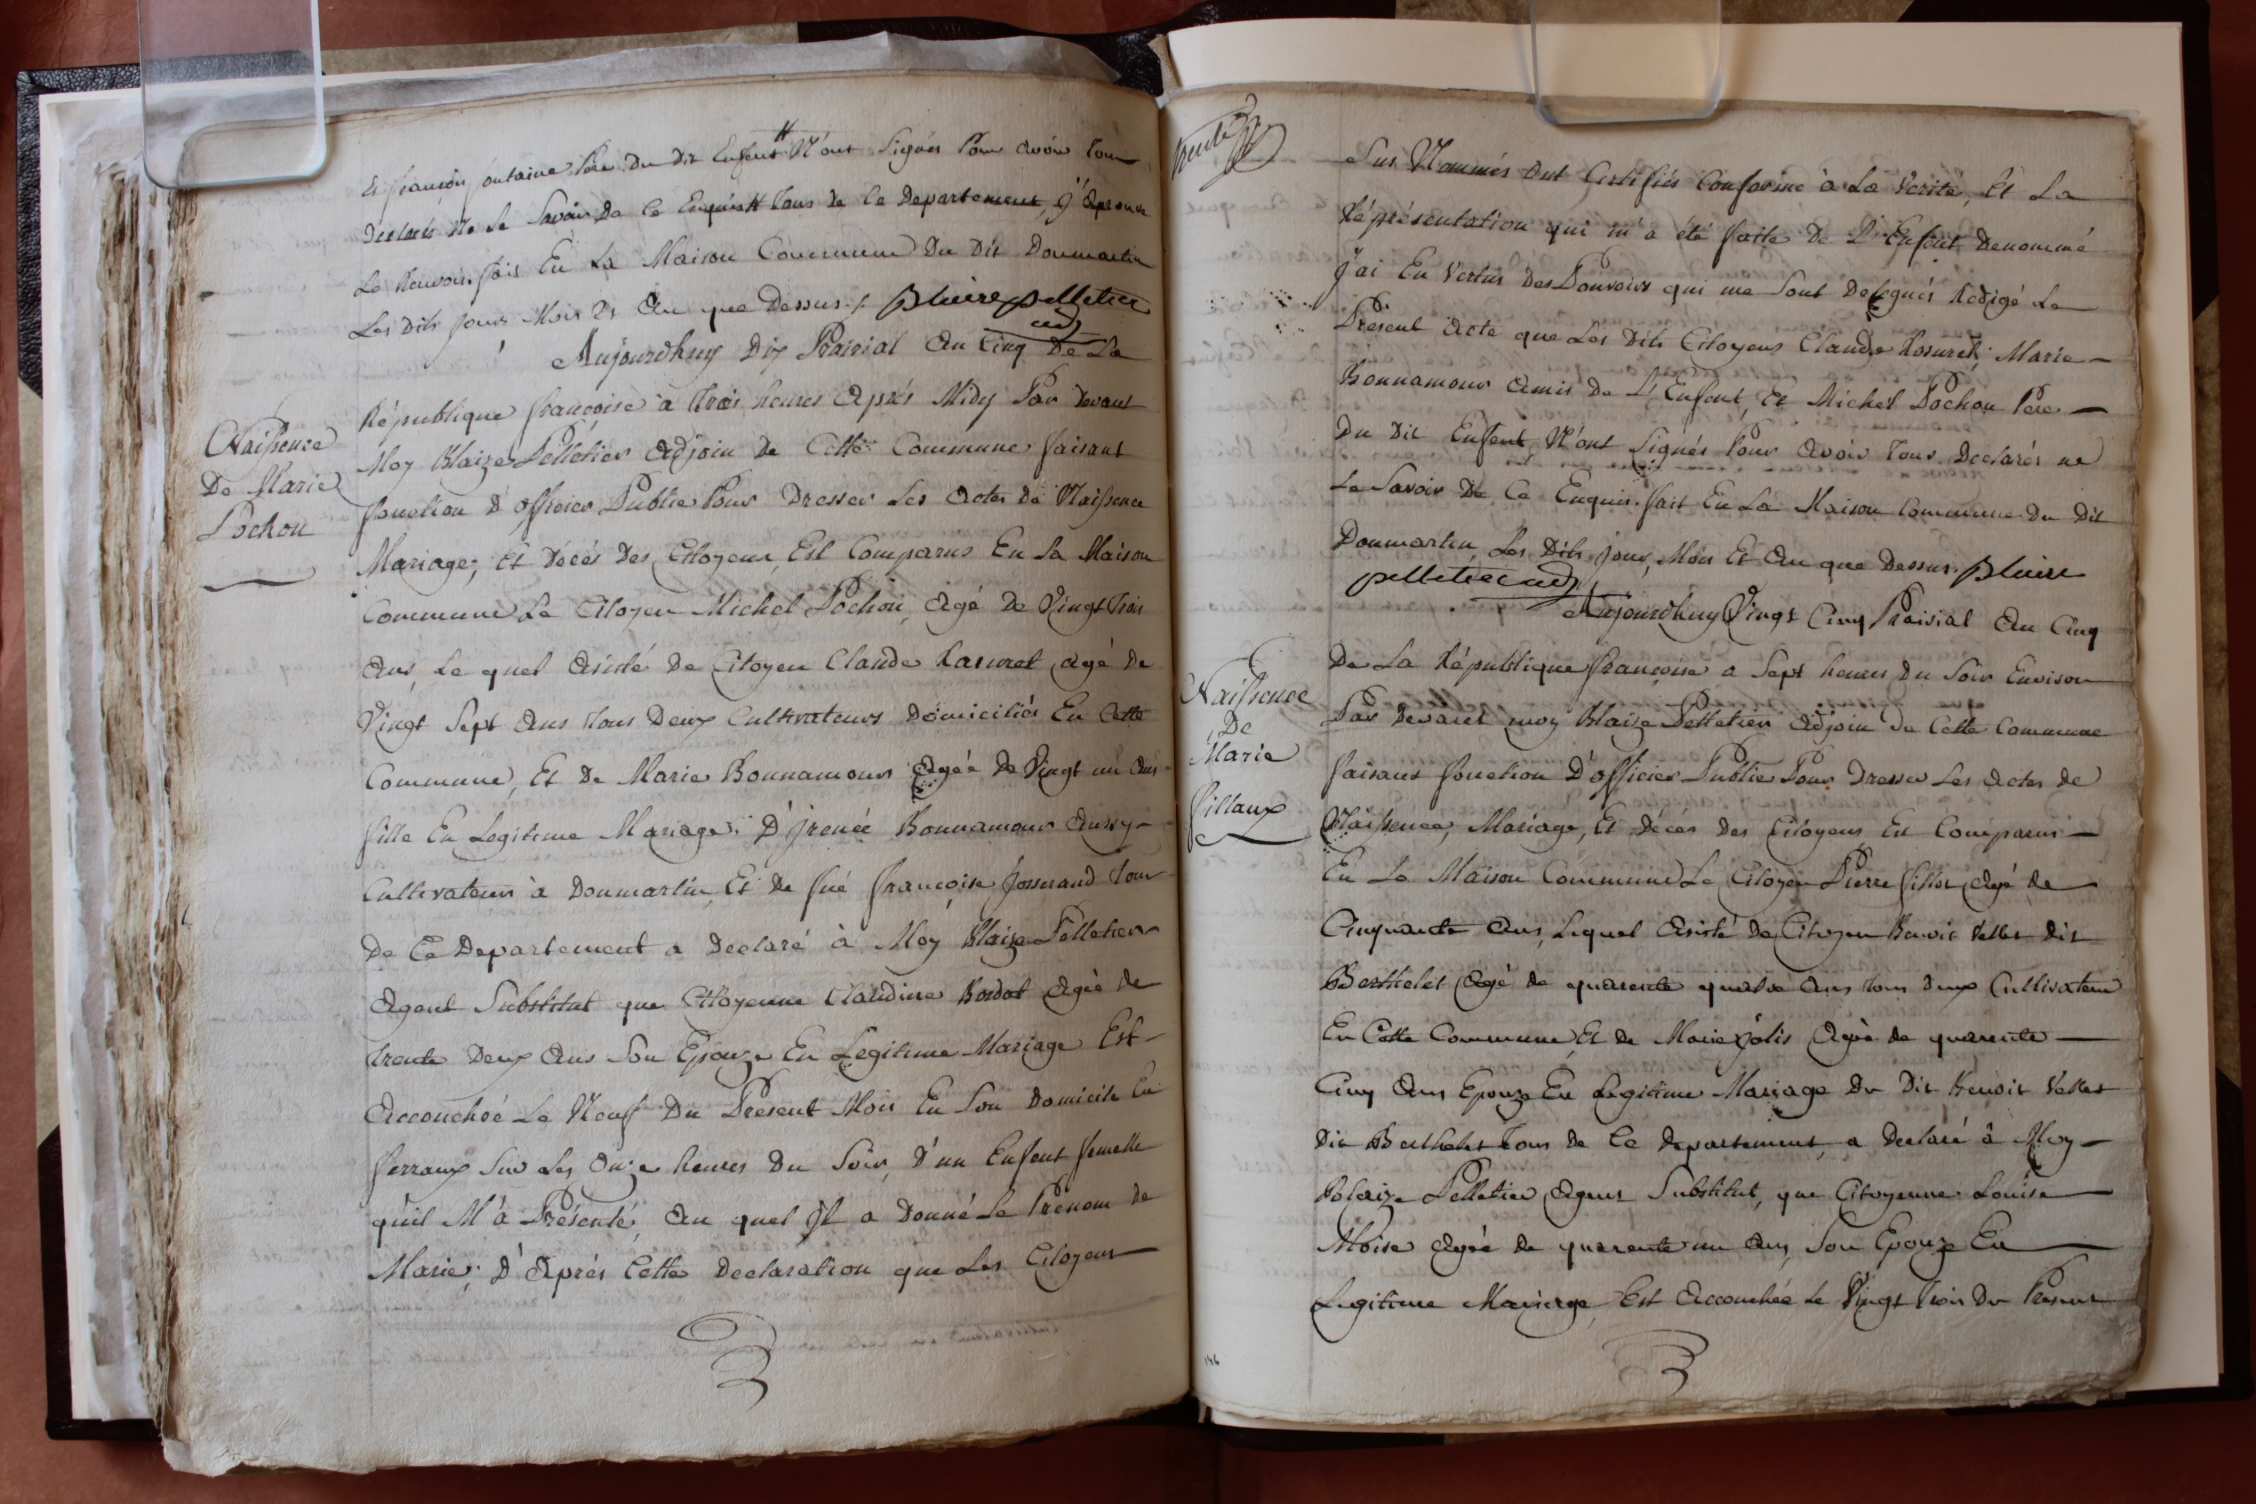 Et françois fontaine Père Du Dit Enfent # N'ont Signés Pour Avoir Tous
Declarés Ne Le Savoir De Ce Enquis # Tous de Ce Departement, J'Aprouve
Le Renvoir. fait En La Maison Commune Du Dit Donmartin
Les Dits Jour Mois Et An que Dessus ./. Blaire pelletier
adj
Aujourdhuy Dix Prairial An Cinq De La
République francoise à Trois heures Après Midy Par Devant
Moy Blaize Pelletier Adjoin de Cette Commune faisant
fonction D'officier Public Pour Dresser Les Actes de Naissence
Mariage, Et Décés Des Citoyens, Est Comparus En La Maison
Commune Le Citoyen Michel Pochon, Agé de Vingt Trois
Ans, Le quel Asisté de Citoyen Claude Rasuret Agé de
Vingt Sept Ans Tous Deux Cultivateurs Domiciliés En Cette
Commune, Et De Marie Bonnamour Agée de Vingt un Ans
fille En Legitime Mariage D'irenée Bonnamour Aussy
Cultivateur à Donmartin, Et de fue françoise Josserand Tous
De Ce Departement a Declaré à Moy Blaize Pelletier
Agent Substitut que Citoyenne Claudine Bordat Agée de
Trente Deux Ans Son Epouze En Legitime Mariage Est
Accouchée Le Neuf Du Present Mois En Son Domicile En
ferraux Sur Les Onze heures Du Soir, D'un Enfent femelle
qu'il M'à Présenté, Au quel Il a Donné Le Prénom de
Marie, D'Après Cette Declaration que Les Citoyens
Naissence
De Marie
Pochon
Sus Nommés Ont Certifiés Conforme à La Verité, Et La
Réprésentation qui m'a été faite De L'Enfent Denommé
J'ai En Vertus Des Pouvoirs qui me Sont Delegués Redigé Le
Présent Acte que Les Dits Citoyens Claude Rasuret, Marie
Bonnamour Amis De L'Enfent, Et Michel Pochon Père
Du Dit Enfent, N'ont Signés Pour Avoir Tous Declarés ne
Le Savoir De Ce Enquis. fait En La Maison Commune Du Dit
Donmartin Les Dits Jour, Mois Et An que Dessus. Blaire
pelletier adj
Aujourdhuy Vingt Cinq Prairial An Cinq
De La République françoise a Sept heures Du Soir Environ
Par Devant moy Blaize Pelletier Adjoin de Cette Commune
faisant fonction D'officier Public Pour Dresser Les Actes de
Naissence, Mariage, Et Décés Des Citoyens Est Comparus
En La Maison Commune Le Citoyen Pierre fillot, Agé de
Cinquante Ans, Lequel Asisté de Citoyen Benoit Dit
Berthelet Agé de quarente quatre Ans tous Deux Cultivateur
En Cette Commune, Et De Marie Agée de quarente
Cinq Ans Epouze En Legitime Mariage Du Dit Benoit
Dit Berthelet Tous De Ce Departement, a Declaré à Moy
Blaize Pelletier Agent Substitut, que Citoyenne Louise
Moise Agée de quarente un Ans, Son Epouze En
Legitime Mariage Est Accouchée Le Vingt Trois Du Present
Naissence
De
Marie
fillaux
146